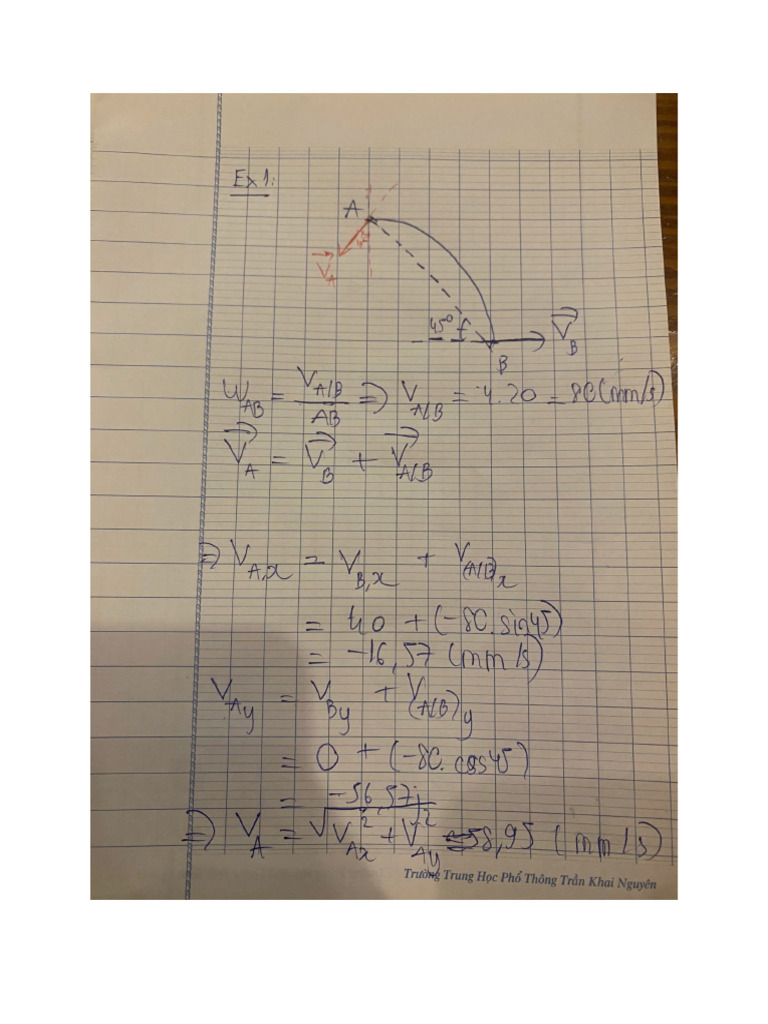 Ex 1:
A
V_A
45°
45°
V_B
B
W_AB = V_A/B / AB ⇒ V_A/B = 4.20 = 80 (mm/s)
V_A = V_B + V_A/B
⇒ V_A,x = V_B,x + V_(A/B)x
= 40 + (-80.sin45)
= -16,57 (mm/s)
V_Ay = V_By + V_(A/B)y
= 0 + (-80.cos45)
= -56,57j
⇒ V_A = √(V_Ax² + V_Ay²) = 58,95 (mm/s)
Trường Trung Học Phổ Thông Trần Khai Nguyên